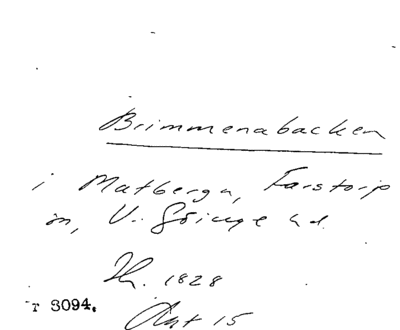 Brimmenabacken
i Matberga, Farstorp
sn, V. Göinge hd.
1828
T 3094.
Akt 15